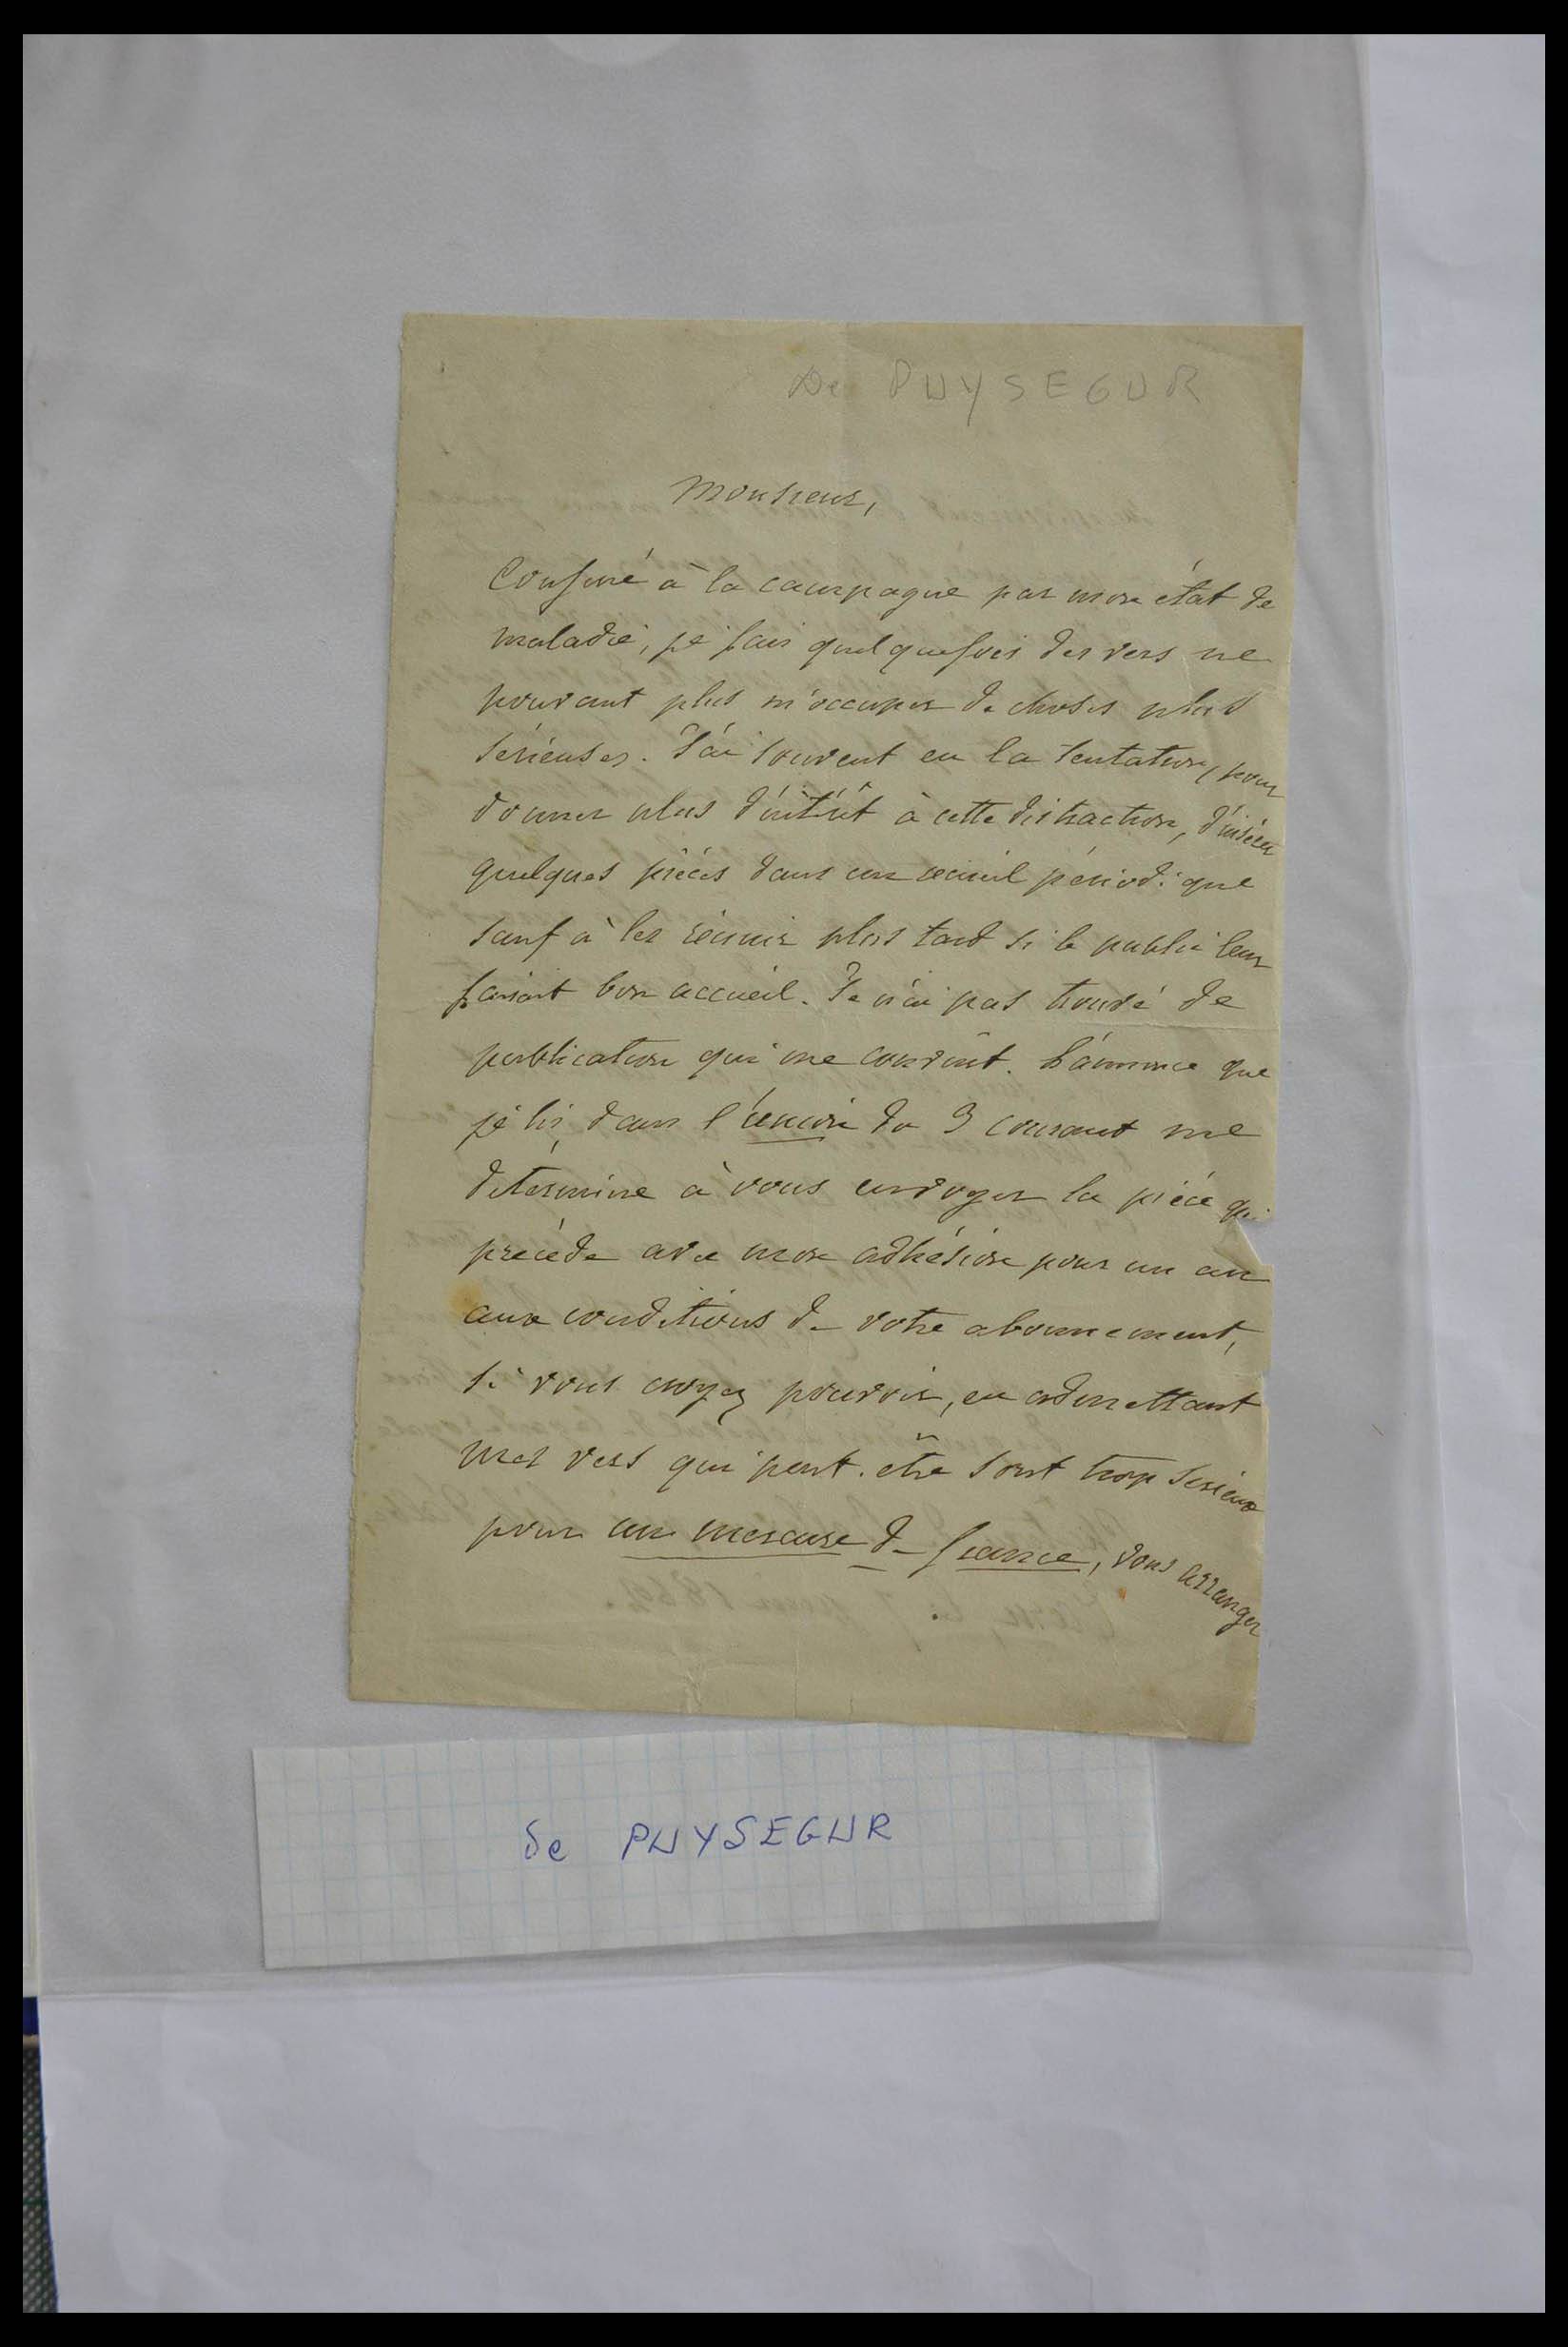 De PUYSEGUR
Monsieur,
Confiné à la campagne par mon état de
maladie, je fais quelquefois des vers ne
pouvant plus m'occuper de choses plus
sérieuses. J'ai souvent eu la tentation, pour
donner plus d'intérêt à cette distraction, d'insérer
quelques pièces dans un recueil périodique
sauf à les réunir plus tard si le public leur
faisait bon accueil. Je n'ai pas trouvé de
publication qui me convînt. L'annonce que
je lis, dans l'union du 3 courant me
détermine à vous envoyer la pièce qui
précède avec mon adhésion pour un an
aux conditions de votre abonnement,
si vous croyez pouvoir, en admettant
mes vers qui peut-être sont trop sérieux
pour un mercure de france, vous arranger
de PUYSEGUR